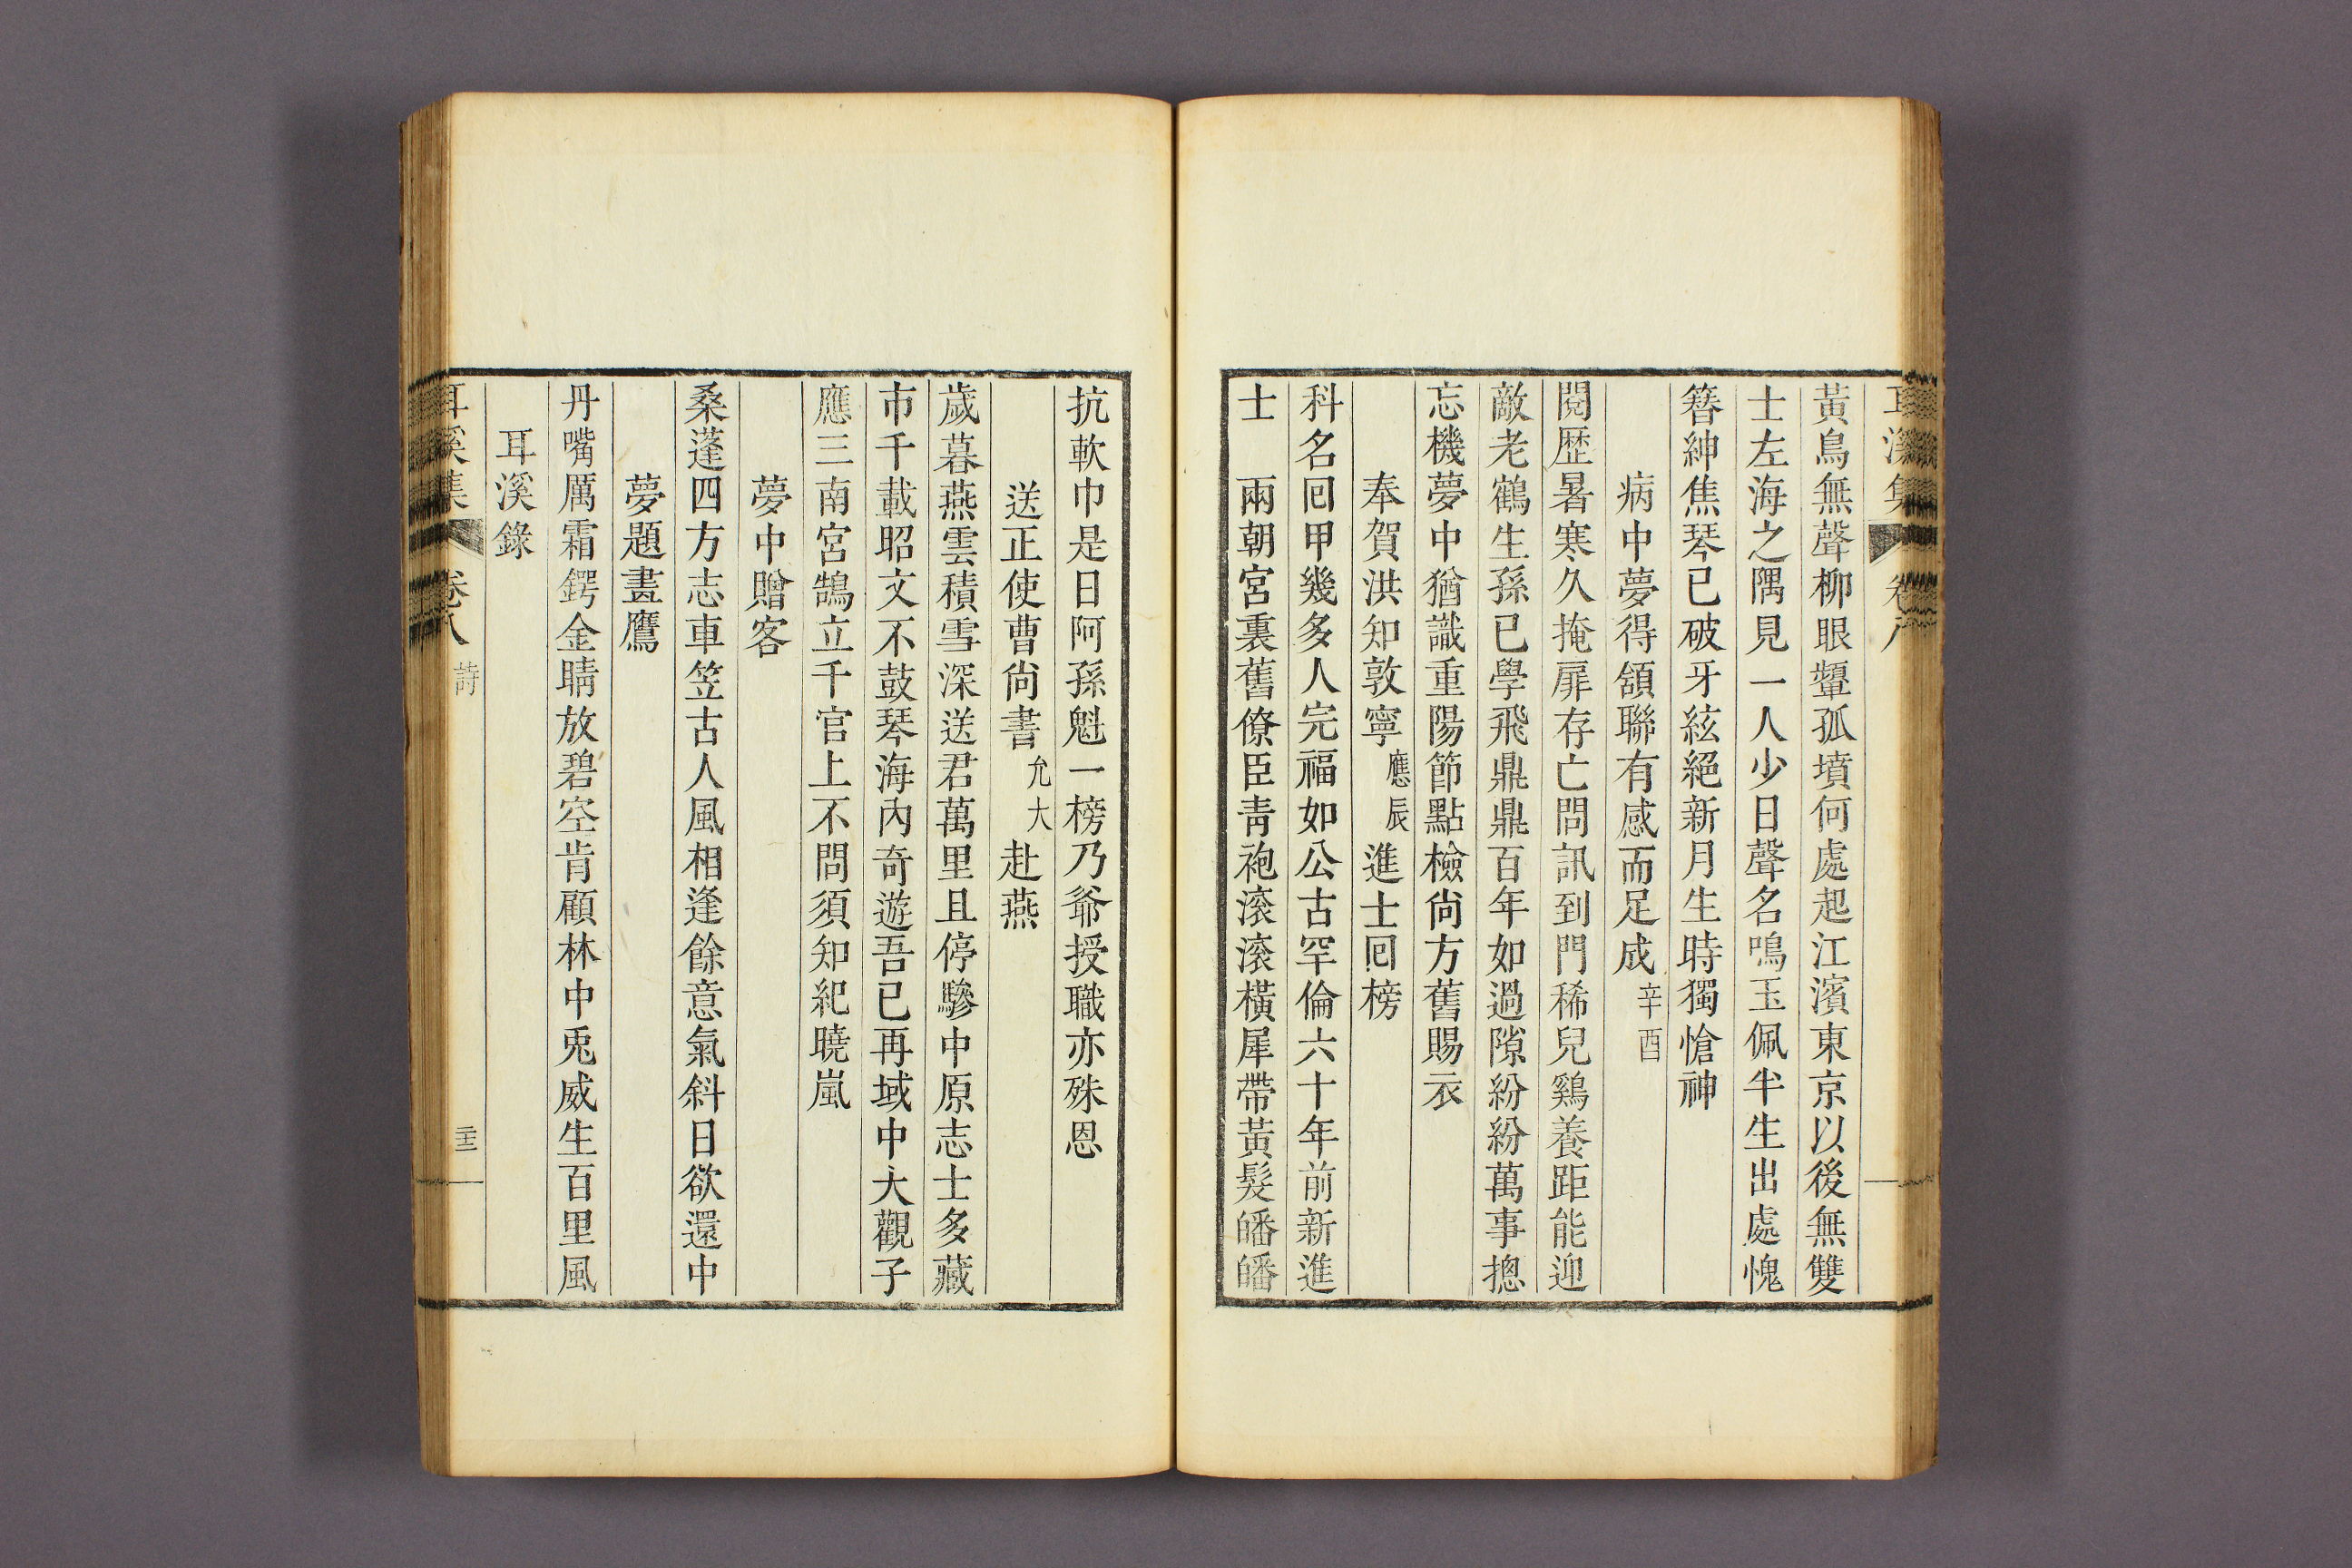 耳溪集 卷八
黃鳥無聲柳眼顰孤墳何處起江濱東京以後無雙
士左海之隅見一人少日聲名鳴玉佩半生出處愧
簪紳焦琴已破牙絃絕新月生時獨愴神
病中夢得頷聯有感而足成辛酉
閱歷暑寒久掩扉存亡問訊到門稀兒鷄養距能迎
敵老鶴生孫已學飛鼎鼎百年如過隙紛紛萬事摠
忘機夢中猶識重陽節點檢尙方舊賜衣
奉賀洪知敦寧應辰進士回榜
科名回甲幾多人完福如公古罕倫六十年前新進
士 兩朝宮裏舊僚臣靑袍滚滚橫犀帶黃髮皤皤
抗軟巾是日阿孫魁一榜乃爺授職亦殊恩
送正使曹尙書允大赴燕
歲暮燕雲積雪深送君萬里且停驂中原志士多藏
市千載昭文不鼓琴海內奇遊吾已再域中大觀子
應三南宮鵠立千官上不問須知紀曉嵐
夢中贈客
桑蓬四方志車笠古人風相逢餘意氣斜日欲還中
夢題畫鷹
丹嘴厲霜鍔金睛放碧空肯顧林中兎威生百里風
耳溪錄
耳溪集 卷八 詩